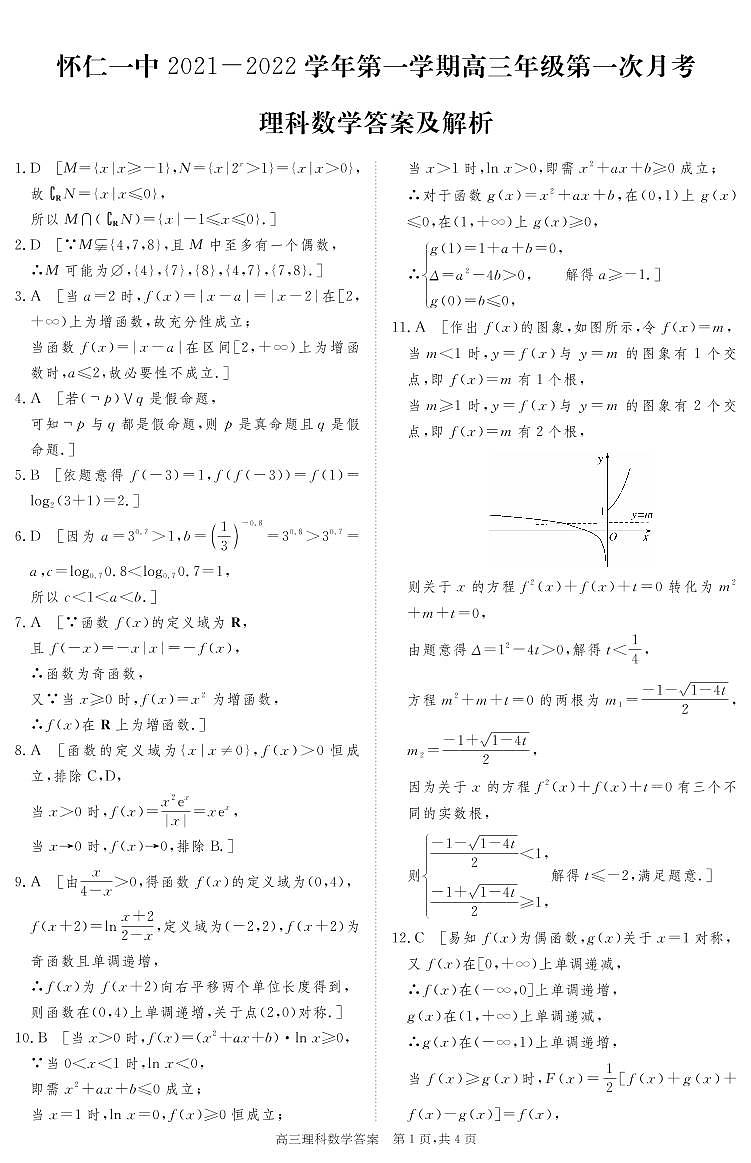 怀仁一中 2021－2022 学年第一学期高三年级第一次月考
理科数学答案及解析
1. D [M={x|x≥－1},N={x|2ˣ>1}={x|x>0},
故∁RN={x|x≤0},
所以 M∩(∁RN)={x|－1≤x≤0}.]
2. D [∵M⫋{4,7,8},且 M 中至多有一个偶数,
∴M 可能为∅,{4},{7},{8},{4,7},{7,8}.]
3. A [当 a=2 时,f(x)=|x－a|=|x－2|在[2,
+∞)上为增函数,故充分性成立;
当函数 f(x)=|x－a|在区间[2,+∞)上为增函
数时,a≤2,故必要性不成立.]
4. A [若(¬p)∨q 是假命题,
可知¬p 与 q 都是假命题,则 p 是真命题且 q 是假
命题.]
5. B [依题意得 f(－3)=1,f(f(－3))=f(1)=
log₂(3+1)=2.]
6. D [因为 a=3^0.7>1,b=(1/3)^－0.8=3^0.8>3^0.7=
a,c=log₀.₇0.8<log₀.₇0.7=1,
所以 c<1<a<b.]
7. A [∵函数 f(x)的定义域为 R,
且 f(－x)=－x|x|=－f(x),
∴函数为奇函数,
又∵当 x≥0 时,f(x)=x² 为增函数,
∴f(x)在 R 上为增函数.]
8. A [函数的定义域为{x|x≠0},f(x)>0 恒成
立,排除 C,D,
当 x>0 时,f(x)=x²eˣ/|x|=xeˣ,
当 x→0 时,f(x)→0,排除 B.]
9. A [由x/(4－x)>0,得函数 f(x)的定义域为(0,4),
f(x+2)=ln (x+2)/(2－x),定义域为(－2,2),f(x+2)为
奇函数且单调递增,
∴f(x)为 f(x+2)向右平移两个单位长度得到,
则函数在(0,4)上单调递增,关于点(2,0)对称.]
10. B [当 x>0 时,f(x)=(x²+ax+b)·ln x≥0,
∵当 0<x<1 时,ln x<0,
即需 x²+ax+b≤0 成立;
当 x=1 时,ln x=0,f(x)≥0 恒成立;
当 x>1 时,ln x>0,即需 x²+ax+b≥0 成立;
∴对于函数 g(x)=x²+ax+b,在(0,1)上 g(x)
≤0,在(1,+∞)上 g(x)≥0,
g(1)=1+a+b=0,
∴{Δ=a²－4b>0, 解得 a≥－1.]
g(0)=b≤0,
11. A [作出 f(x)的图象,如图所示,令 f(x)=m,
当 m<1 时,y=f(x)与 y=m 的图象有 1 个交
点,即 f(x)=m 有 1 个根,
当 m≥1 时,y=f(x)与 y=m 的图象有 2 个交
点,即 f(x)=m 有 2 个根,
y
1
y=m
O
x
1
则关于 x 的方程 f²(x)+f(x)+t=0 转化为 m²
+m+t=0,
由题意得 Δ=1²－4t>0,解得 t<1/4,
方程 m²+m+t=0 的两根为 m₁=(－1－√(1－4t))/2,
m₂=(－1+√(1－4t))/2,
因为关于 x 的方程 f²(x)+f(x)+t=0 有三个不
同的实数根,
(－1－√(1－4t))/2<1,
则{ 解得 t≤－2,满足题意.]
(－1+√(1－4t))/2≥1,
12. C [易知 f(x)为偶函数,g(x)关于 x=1 对称,
又 f(x)在[0,+∞)上单调递减,
∴f(x)在(－∞,0]上单调递增,
g(x)在(1,+∞)上单调递减,
∴g(x)在(－∞,1)上单调递增,
当 f(x)≥g(x)时,F(x)=1/2[f(x)+g(x)+
f(x)－g(x)]=f(x),
高三理科数学答案 第 1 页,共 4 页